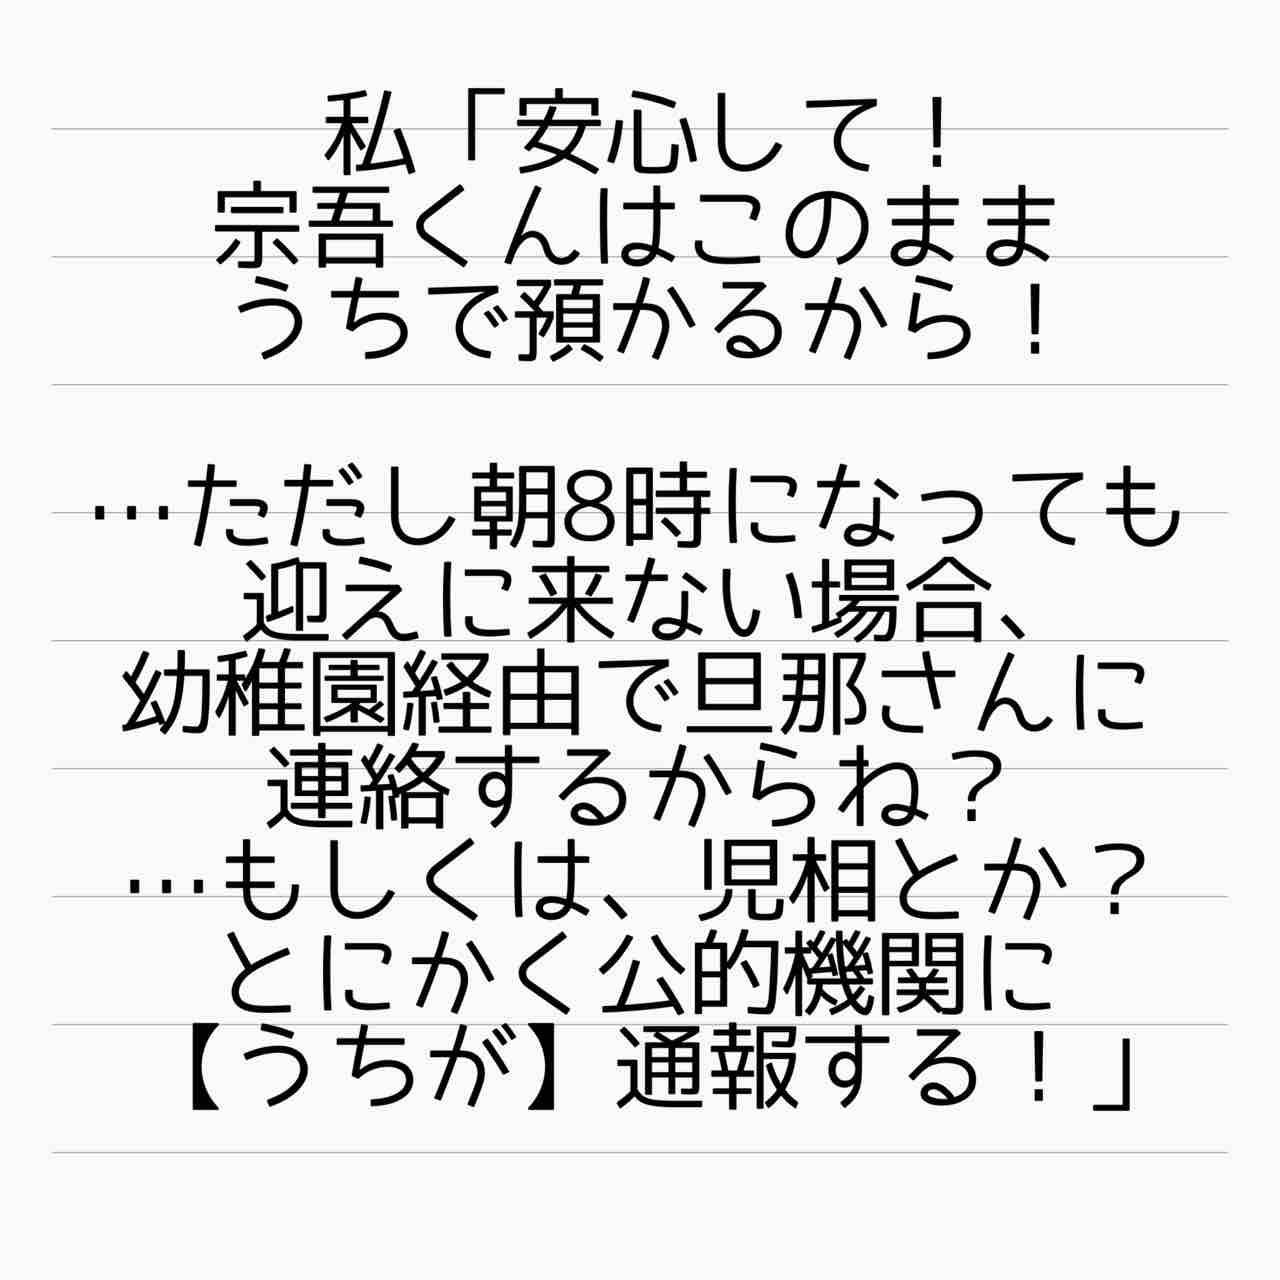 私「安心して！
宗吾くんはこのまま
うちで預かるから！
…ただし朝8時になっても
迎えに来ない場合、
幼稚園経由で旦那さんに
連絡するからね？
…もしくは、児相とか？
とにかく公的機関に
【うちが】通報する！」